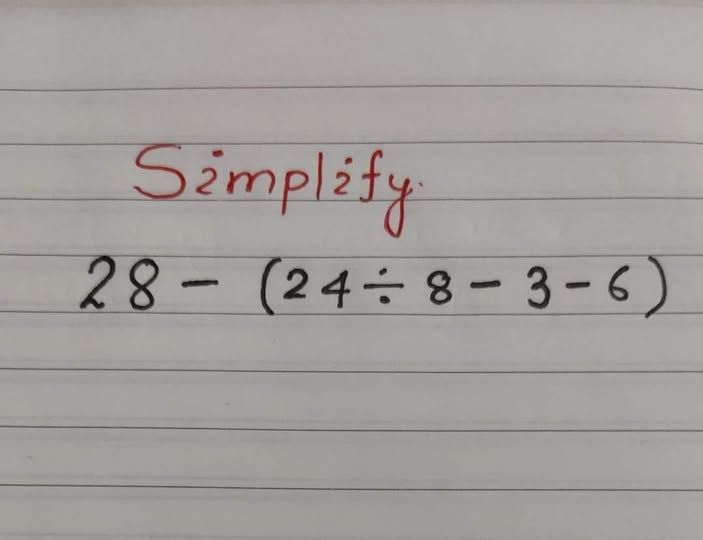 Simplify.
28 - (24 ÷ 8 - 3 - 6)